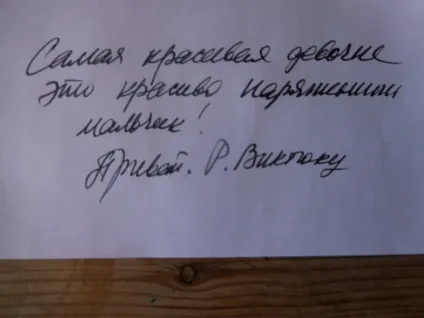 Самая красивая девочка
это красиво наряженный
мальчик!
Привет. Р. Виктюку